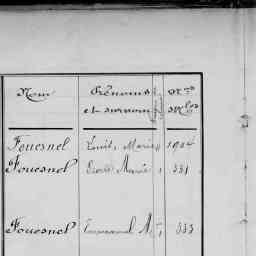 Nom Prénoms et surnom Nos Mles
Fouesnel Louis, Marie 1904
Fouesnel Marie 331
Fouesnel Emmanuel M. 333